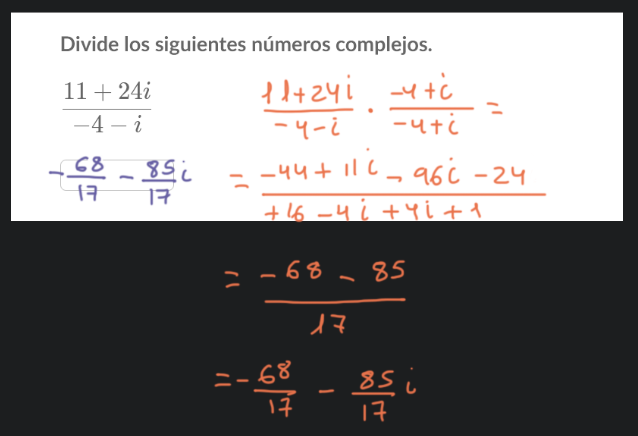 Divide los siguientes números complejos.
\frac{11 + 24i}{-4 - i}
\frac{11+24i}{-4-i} · \frac{-4+i}{-4+i} =
-\frac{68}{17} - \frac{85}{17}i
= \frac{-44+11i-96i-24}{+16-4i+4i+1}
= \frac{-68-85}{17}
= -\frac{68}{17} - \frac{85}{17}i